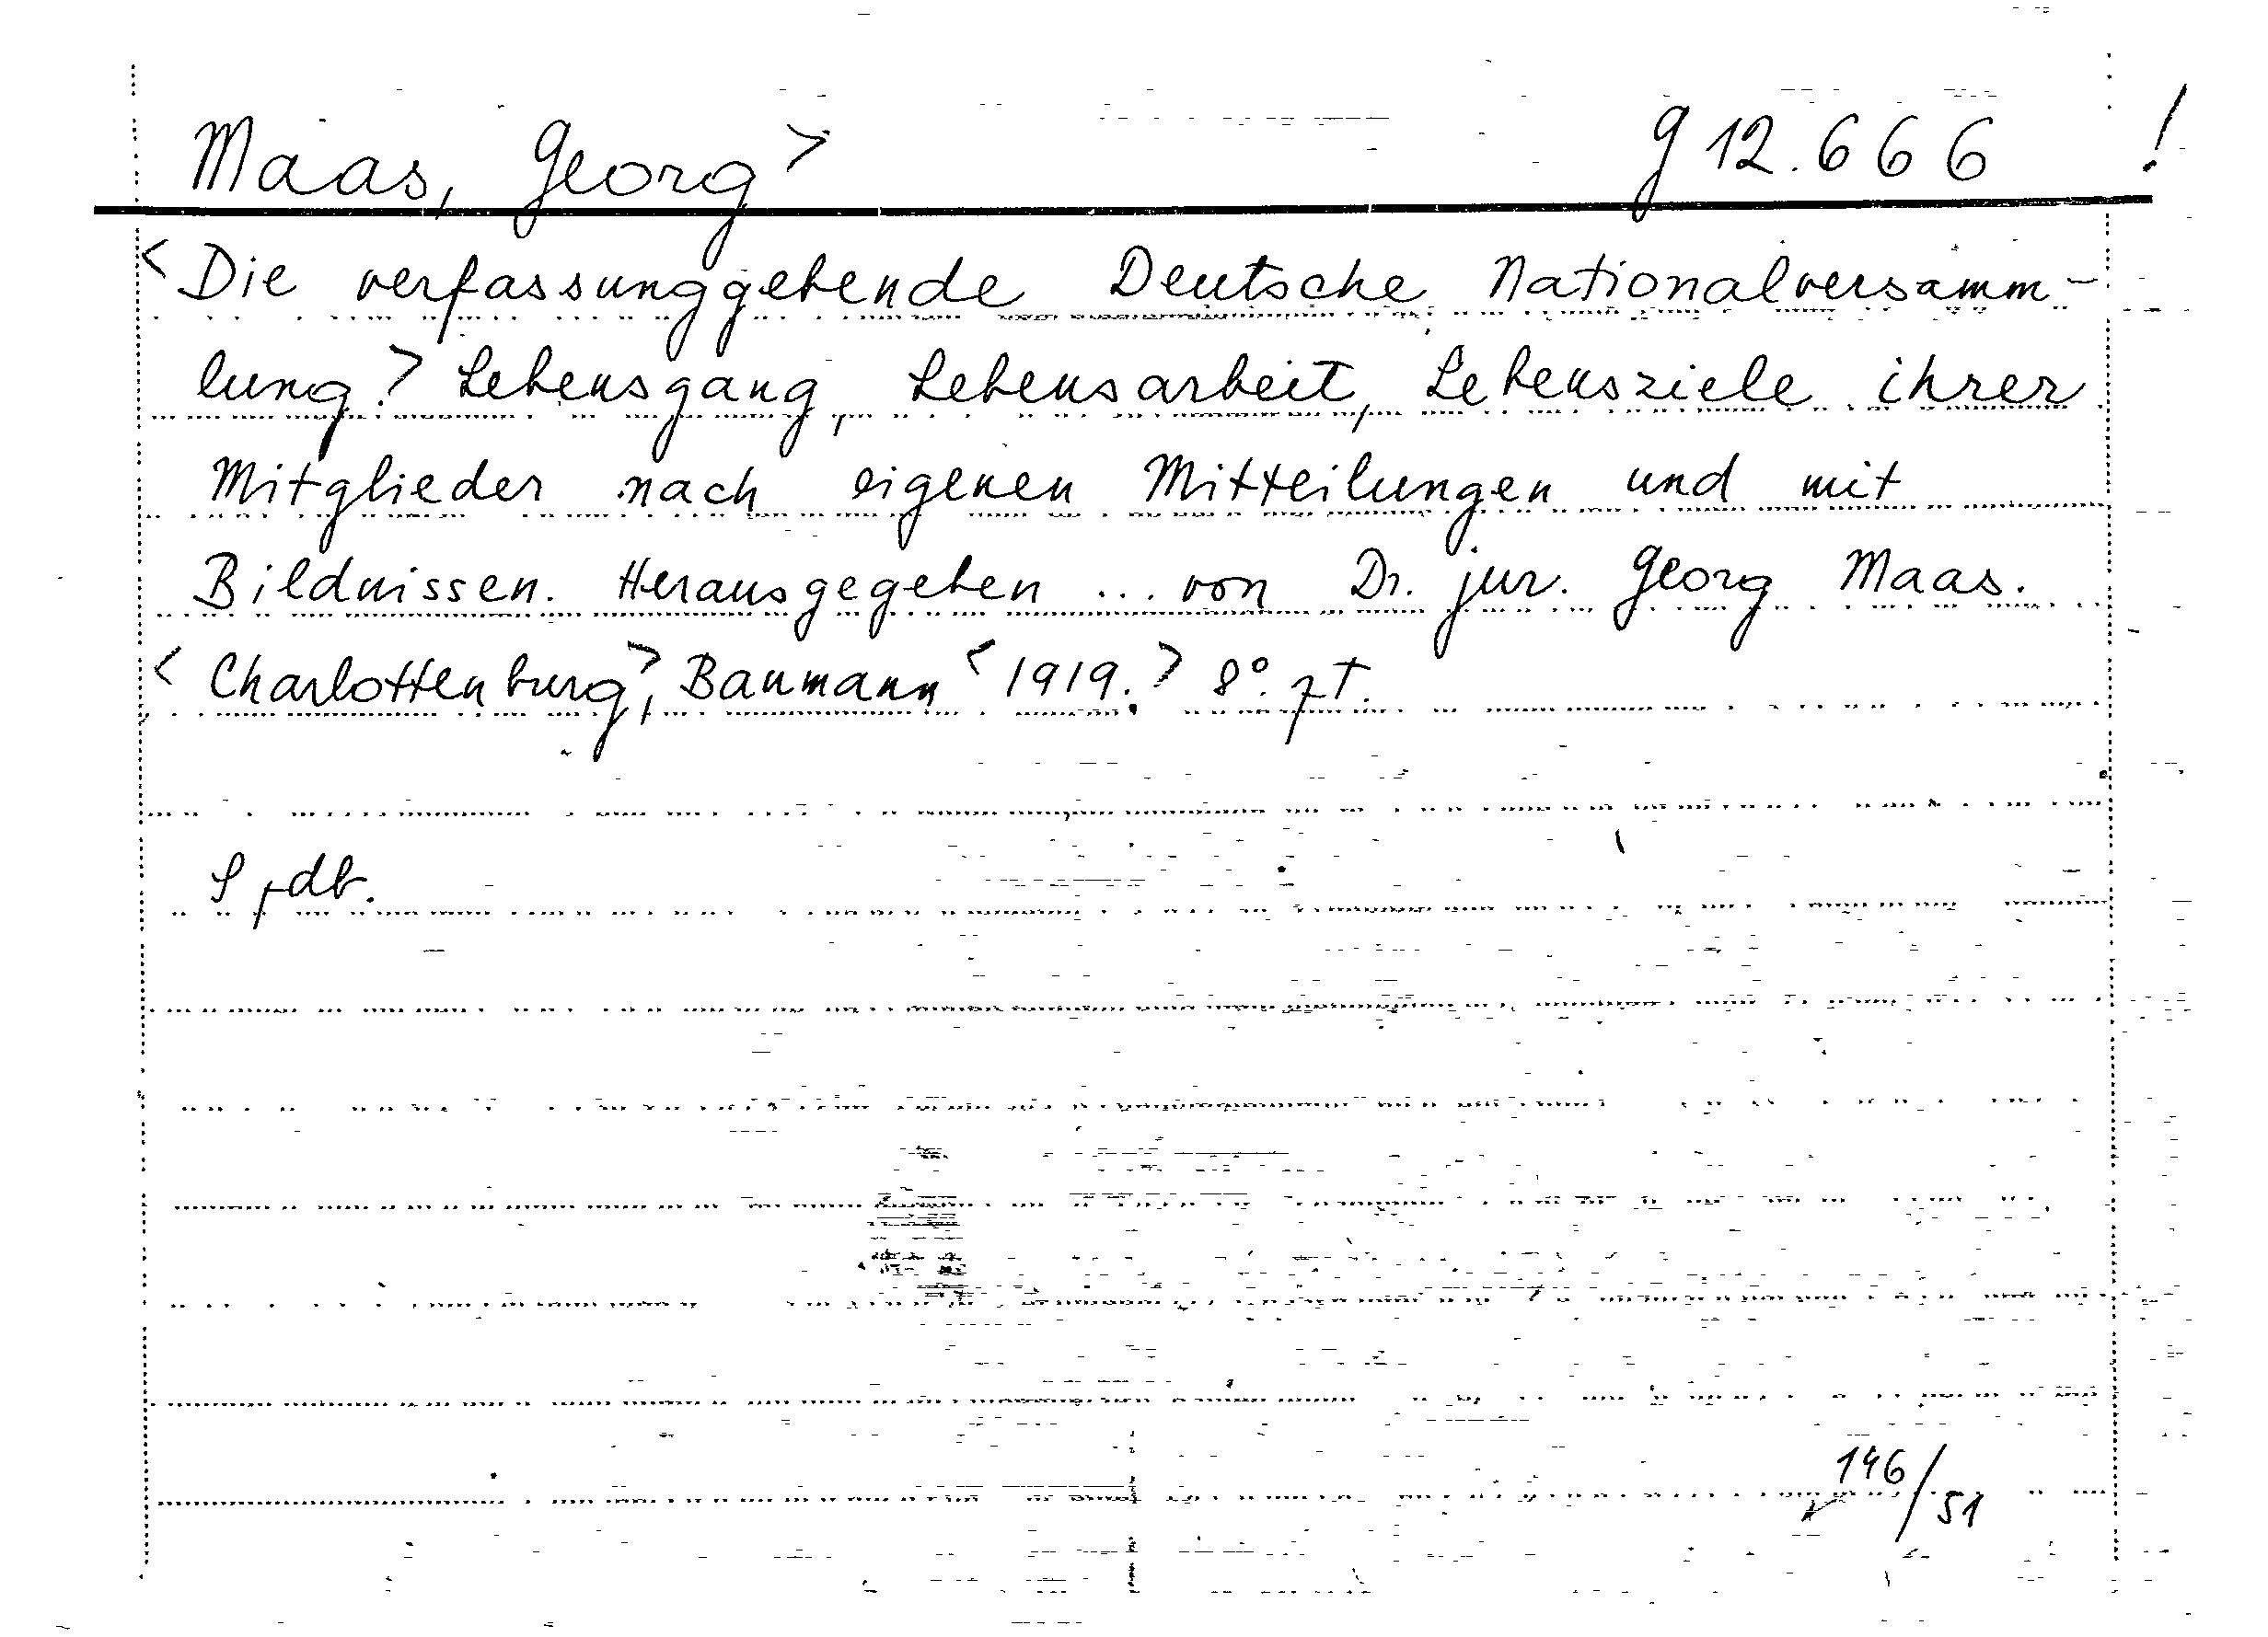 Maas, Georg> G 12.666 !
<Die verfassunggebende Deutsche Nationalversamm-
lung.> Lebensgang, Lebensarbeit, Lebensziele ihrer
Mitglieder nach eigenen Mitteilungen und mit
Bildnissen. Herausgegeben ... von Dr. jur. Georg Maas.
<Charlottenburg>, Baumann <1919.> 8°.
146/51